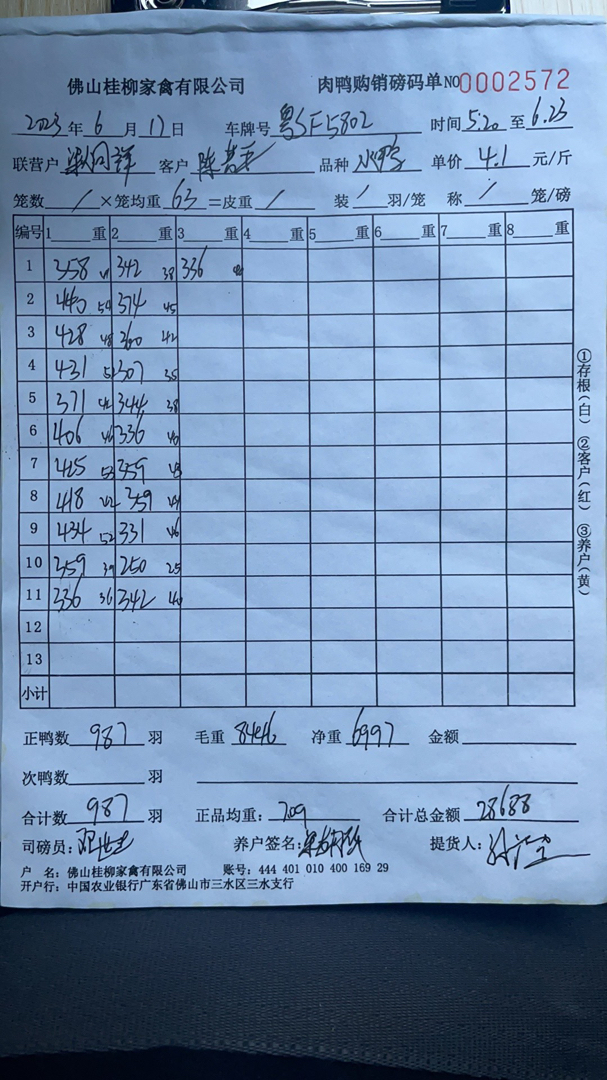 佛山桂柳家禽有限公司 肉鸭购销磅码单 NO0002572
2023年6月17日 车牌号 粤SF5802 时间5.20至6.23
联营户 客户 陈 品种 水鸭 单价 4.1 元/斤
笼数 / ×笼均重 63 =皮重 / 装 / 羽/笼 称 / 笼/磅
编号 1 重 2 重 3 重 4 重 5 重 6 重 7 重 8 重
1 358 342 38 336
2 440 50 374 45
3 428 48 360 42
4 431 307 35
5 371 344 38
6 406 336 40
7 425 53 359 43
8 418 359
9 434 52 331 46
10 359 39 250 25
11 336 36 342 40
12
13
小计
正鸭数 987 羽 毛重 8446 净重 6997 金额
次鸭数 羽
合计数 987 羽 正品均重: 709 合计总金额 28688
司磅员: 养户签名: 提货人:
户 名: 佛山桂柳家禽有限公司 账号: 444 401 010 400 169 29
开户行: 中国农业银行广东省佛山市三水区三水支行
①存根(白) ②客户(红) ③养户(黄)